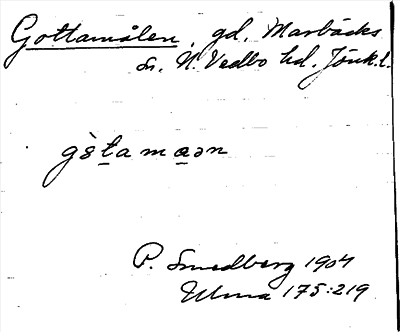 Gottamålen, gd, Marbäcks
sn. N. Vedbo hd. Jönk. l.
P. Smedberg 1904
Ulma 175:219